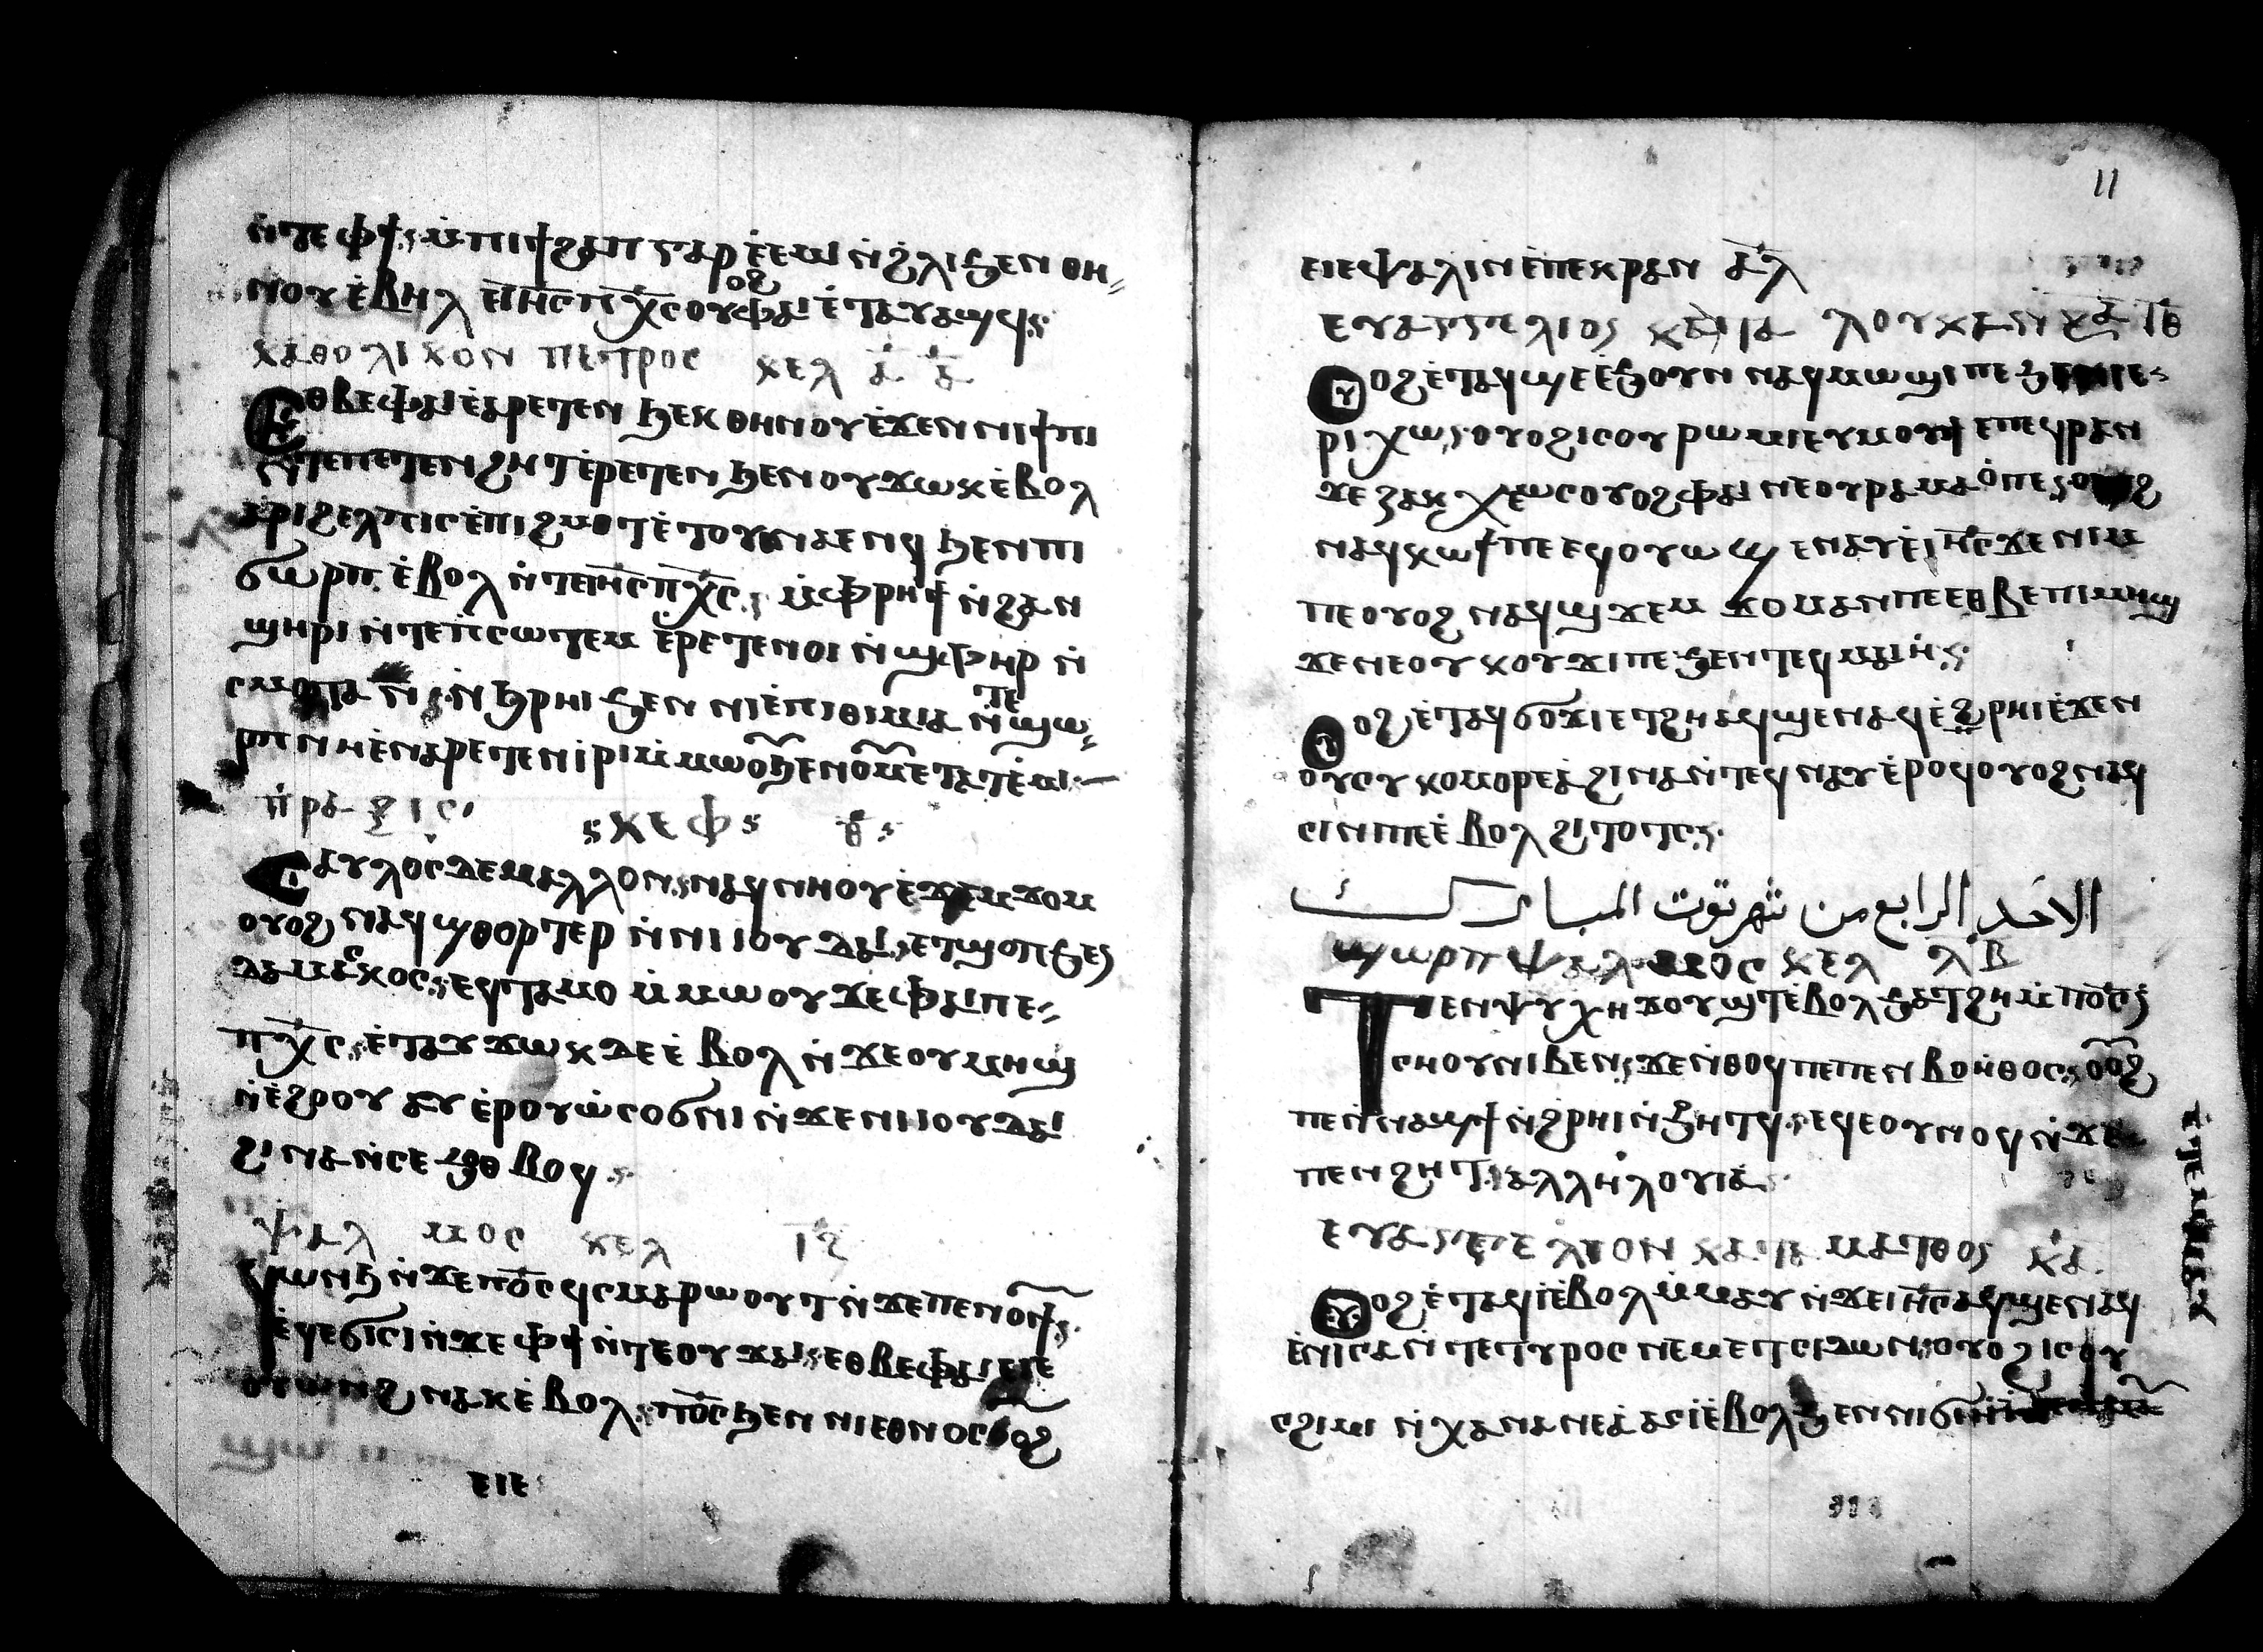 ⲛ̀ⲧⲉ ⲫϯ ⲙ̀ⲡⲓϯϩⲁⲡ ⲅⲁⲣ ⲉ̀ⲉⲙⲓ ⲛ̀ϩⲗⲓ ϧⲉⲛ ⲑⲏ
ⲛⲟⲩ ⲉ̀ⲃⲏⲗ ⲉⲓⲏⲥ ⲡⲭ̅ⲥ ⲟⲩⲟϩ ⲫⲁⲓ ⲉ̀ⲧⲁⲩⲁϣϥ
ⲕⲁⲑⲟⲗⲓⲕⲟⲛ ⲡⲉⲧⲣⲟⲥ ⲕⲉⲗ ⲁ̅ ⲁ̅
Ⲉⲑⲃⲉⲫⲁⲓ ⲉ̀ⲁⲣⲉⲧⲉⲛ ϧⲉⲕ ⲑⲏⲛⲟⲩ ⲉ̀ϫⲉⲛ ⲛⲓϯⲡⲓ
ⲛ̀ⲧⲉⲡⲉⲧⲉⲛϩⲏⲧ ⲉ̀ⲣⲉⲧⲉⲛ ϧⲉⲛ ⲟⲩϫⲱⲕ ⲉ̀ⲃⲟⲗ
ⲁ̀ⲣⲓϩⲉⲗⲡⲓⲥ ⲉ̀ⲡⲓϩⲙⲟⲧ ⲉ̀ⲧⲟⲩⲛⲁⲉⲛϥ ϧⲉⲛ ⲡⲓ
ϭⲱⲣⲡ ⲉ̀ⲃⲟⲗ ⲛ̀ⲧⲉⲓⲏⲥ ⲡⲭ̅ⲥ ⲙ̀ⲫⲣⲏϯ ⲛ̀ϩⲁⲛ
ϣⲏⲣⲓ ⲛ̀ⲧⲉⲡⲥⲱⲧⲉⲙ ⲉ̀ⲣⲉⲧⲉⲛⲟⲓ ⲛ̀ϣⲫⲏⲣ ⲛ̀
ⲥⲙⲟⲧ ⲁⲛ ⲛ̀ϧⲣⲏⲓ ϧⲉⲛ ⲛⲓⲉ̀ⲡⲓⲑⲓⲙⲓⲁ ⲛ̀ⲧⲉ ϣⲱ
ⲣⲡ ⲛⲏ ⲉ̀ⲛⲁⲣⲉⲧⲉⲛⲓ̀ⲣⲓ ⲙ̀ⲙⲱⲟ︦ ϧⲉⲛ ⲟ︦ⲙⲉⲧⲁⲧⲉ̀ⲙⲓ
ⲡ̀ⲣⲁⲝⲓⲥ ⲕⲉⲫ ⲑ̅
Ⲥⲁⲩⲗⲟⲥ ⲇⲉ ⲙⲁⲗⲗⲟⲛ ⲛⲁϥⲛⲏⲟⲩ ⲉ̀ϫⲉⲙϫⲟⲙ
ⲟⲩⲟϩ ⲛⲁϥϣⲑⲟⲣⲧⲉⲣ ⲛ̀ⲛⲓⲓⲟⲩⲇⲁⲓ ⲉⲧϣⲟⲡ ϧⲉⲛ
ⲇⲁⲙⲁⲥⲕⲟⲥ ⲉϥⲧⲁⲙⲟ ⲙ̀ⲙⲱⲟⲩ ϫⲉ ⲫⲁⲓ ⲡⲉ
ⲡⲭ̅ⲥ ⲉ̀ⲧⲁⲩϫⲱⲕ ⲇⲉ ⲉ̀ⲃⲟⲗ ⲛ̀ϫⲉ ⲟⲩⲙⲏϣ
ⲛ̀ⲉ̀ϩⲟⲟⲩ ⲁⲩⲉ̀ⲣⲟⲩⲱ̀ⲥⲟϭⲛⲓ ⲛ̀ϫⲉ ⲛⲓⲓⲟⲩⲇⲁⲓ
ϩⲓⲛⲁ ⲛ̀ⲥⲉϧⲟⲑⲃⲟϥ
ⲯⲁⲗⲙⲟⲥ ⲕⲉⲗ ⲓⲍ̅
Ϥⲱⲛϧ ⲛ̀ϫⲉ ⲡⲟ̅ⲥ ϥⲥⲙⲁⲣⲱⲟⲩⲧ ⲛ̀ϫⲉ ⲡⲉⲛⲟ︦ϯ
ⲉ̀ϥⲉϭⲓⲥⲓ ⲛ̀ϫⲉ ⲫϯ ⲛ̀ⲧⲉ ⲟⲩϫⲁⲓ ⲉⲑⲃⲉⲫⲁⲓ ⲉⲓⲉ
ⲟⲩⲱⲛϩ ⲛⲁⲕ ⲉ̀ⲃⲟⲗ ⲡⲟ̅ⲥ ϧⲉⲛ ⲛⲓⲉⲑⲛⲟⲥ ⲟ︦ⲟϩ
ⲉⲓⲉ
11
ⲉⲓⲉⲯⲁⲗⲓⲛ ⲉ̀ⲡⲉⲕⲣⲁⲛ ⲁ̅ⲗ
ⲉⲩⲁⲅⲅⲉⲗⲓⲟⲥ ⲕⲁⲧⲁ ⲗⲟⲩⲕⲁⲛ ⲕⲁ ⲓⲑ̅
Ⲟⲩⲟϩ ⲉ̀ⲧⲁϥϣⲉ ⲉ̀ϧⲟⲩⲛ ⲛⲁϥⲙⲱϣⲓ ⲡⲉ ϧⲉⲛ ⲓⲉ
ⲣⲓⲭⲱ ⲟⲩⲟϩ ⲓⲥ ⲟⲩⲣⲱⲙⲓ ⲉⲩⲙⲟⲩϯ ⲉⲡⲉϥⲣⲁⲛ
ϫⲉ ⲍⲁⲕⲭⲉⲱⲥ ⲟⲩⲟϩ ⲫⲁⲓ ⲛⲉ ⲟⲩⲣⲁⲙⲁⲟ̀ ⲡⲉ ⲟⲩⲟϩ
ⲛⲁϥⲕⲱϯ ⲡⲉ ⲉϥⲟⲩⲱϣ ⲉⲛⲁⲩ ⲉ̀ⲓⲏⲥ ϫⲉ ⲛⲓⲙ
ⲡⲉ ⲟⲩⲟϩ ⲛⲁϥϣϫⲉⲙϫⲟⲙ ⲁⲛ ⲡⲉ ⲉⲑⲃⲉ ⲡⲓⲙⲏϣ
ϫⲉ ⲛⲉ ⲟⲩⲕⲟⲩϫⲓ ⲡⲉ ϧⲉⲛ ⲧⲉϥⲙⲁⲓⲏ
Ⲟⲩⲟϩ ⲉ̀ⲧⲁϥϭⲟϫⲓ ⲉⲧϩⲏ ⲁϥϣⲉⲛⲁϥ ⲉ̀ϩⲣⲏⲓ ⲉ̀ϫⲉⲛ
ⲟⲩⲥⲩⲕⲟⲙⲟⲣⲉⲁ̀ ϩⲓⲛⲁ ⲛ̀ⲧⲉϥⲛⲁⲩ ⲉ̀ⲣⲟϥ ⲟⲩⲟϩ ⲛⲁϥ
ⲥⲓⲛⲡⲉ ⲉ̀ⲃⲟⲗ ϩⲓⲧⲟⲧⲥ
الاحد الرابع من شهر توت المبارك
ϣⲱⲣⲡ ⲯⲁⲗⲙⲟⲥ ⲕⲉⲗ ⲗⲃ̅
Ⲧⲉⲛⲯⲩⲭⲏ ϫⲟⲩϣⲧ ⲉ̀ⲃⲟⲗ ϧⲁⲧϩⲏ ⲙ̀ⲡⲟ̅ⲥ
ⲛ̀ⲥⲛⲟⲩ ⲛⲓⲃⲉⲛ ϫⲉ ⲛ̀ⲑⲟϥ ⲡⲉ ⲡⲉⲛⲃⲟⲏ̀ⲑⲟⲥ ⲟ︦ⲟϩ
ⲡⲉⲛ̀ⲛⲁϣϯ ⲛ̀ϩⲣⲏⲓ ⲛ̀ϧⲏⲧϥ ⲉϥⲉⲟⲩⲛⲟϥ ⲛ̀ϫⲉ
ⲡⲉⲛϩⲏⲧ ⲁⲗⲗⲏⲗⲟⲩⲓⲁ̀
ⲉⲩⲁⲅⲅⲉⲗⲓⲟⲛ ⲕⲁⲧⲁ ⲙⲁⲧⲑⲟⲥ ⲕⲁ
Ⲟⲩⲟϩ ⲉ̀ⲧⲁϥⲓ̀ ⲉ̀ⲃⲟⲗ ⲙ̀ⲙⲁⲩ ⲛ̀ϫⲉ ⲓⲏⲥ ⲁϥϣⲉⲛⲁϥ
ⲉ̀ⲛⲓⲥⲁ ⲛ̀ⲧⲉ ⲧⲩⲣⲟⲥ ⲛⲉⲙ ⲉⲧⲥⲓⲇⲱⲛ ⲟⲩⲟϩ ⲓⲥ ⲟⲩ
ⲥϩⲓⲙⲓ ⲛ̀ⲭⲁⲛⲁⲛⲉⲁ̀ ⲁⲥⲓ̀ ⲉ̀ⲃⲟⲗ ϧⲉⲛ ⲛⲓϭⲓⲏ̀